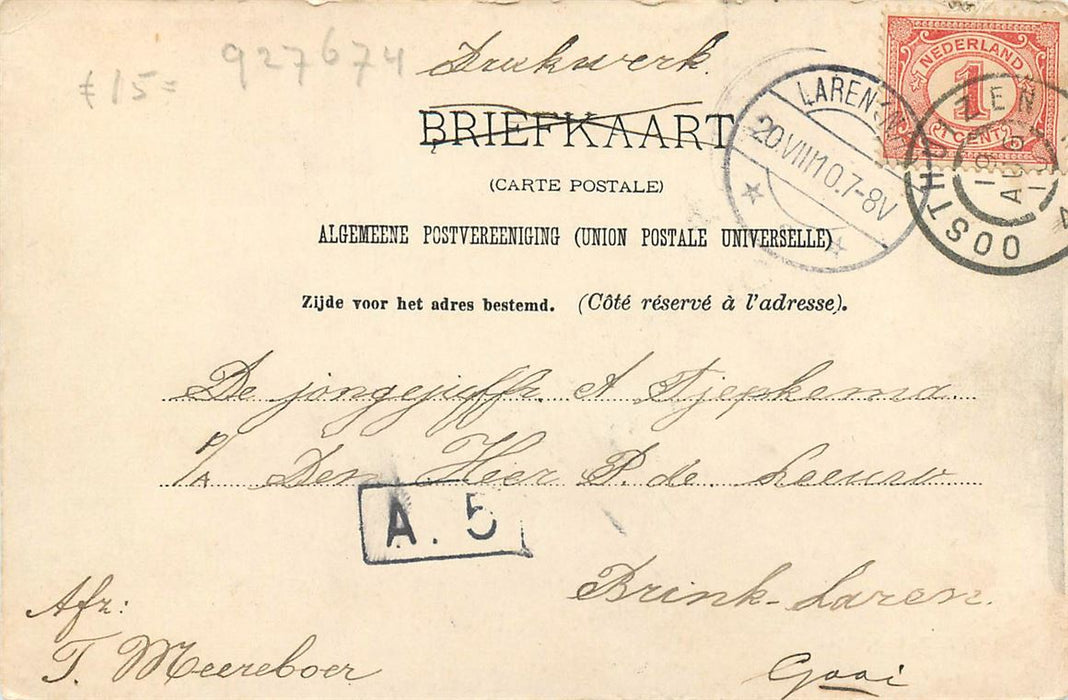 927674
£ 15=
Drukwerk.
BRIEFKAART
(CARTE POSTALE)
ALGEMEENE POSTVEREENIGING (UNION POSTALE UNIVERSELLE)
Zijde voor het adres bestemd. (Côté réservé à l'adresse).
NEDERLAND
1
CENT
LAREN
20 VIII 10.7-8V
OOSTHUIZEN
De jongejuffr. A Tjepkema.
P/A Den Heer P. de Leeuw
A. 5
Brink-Laren.
Gooi
Afz:
T. Meereboer